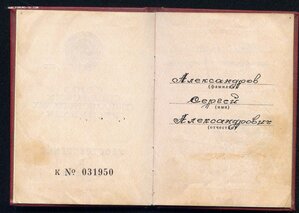 К № 031950
Александров
(фамилия)
Сергей
(имя)
Александрович
(отчество)